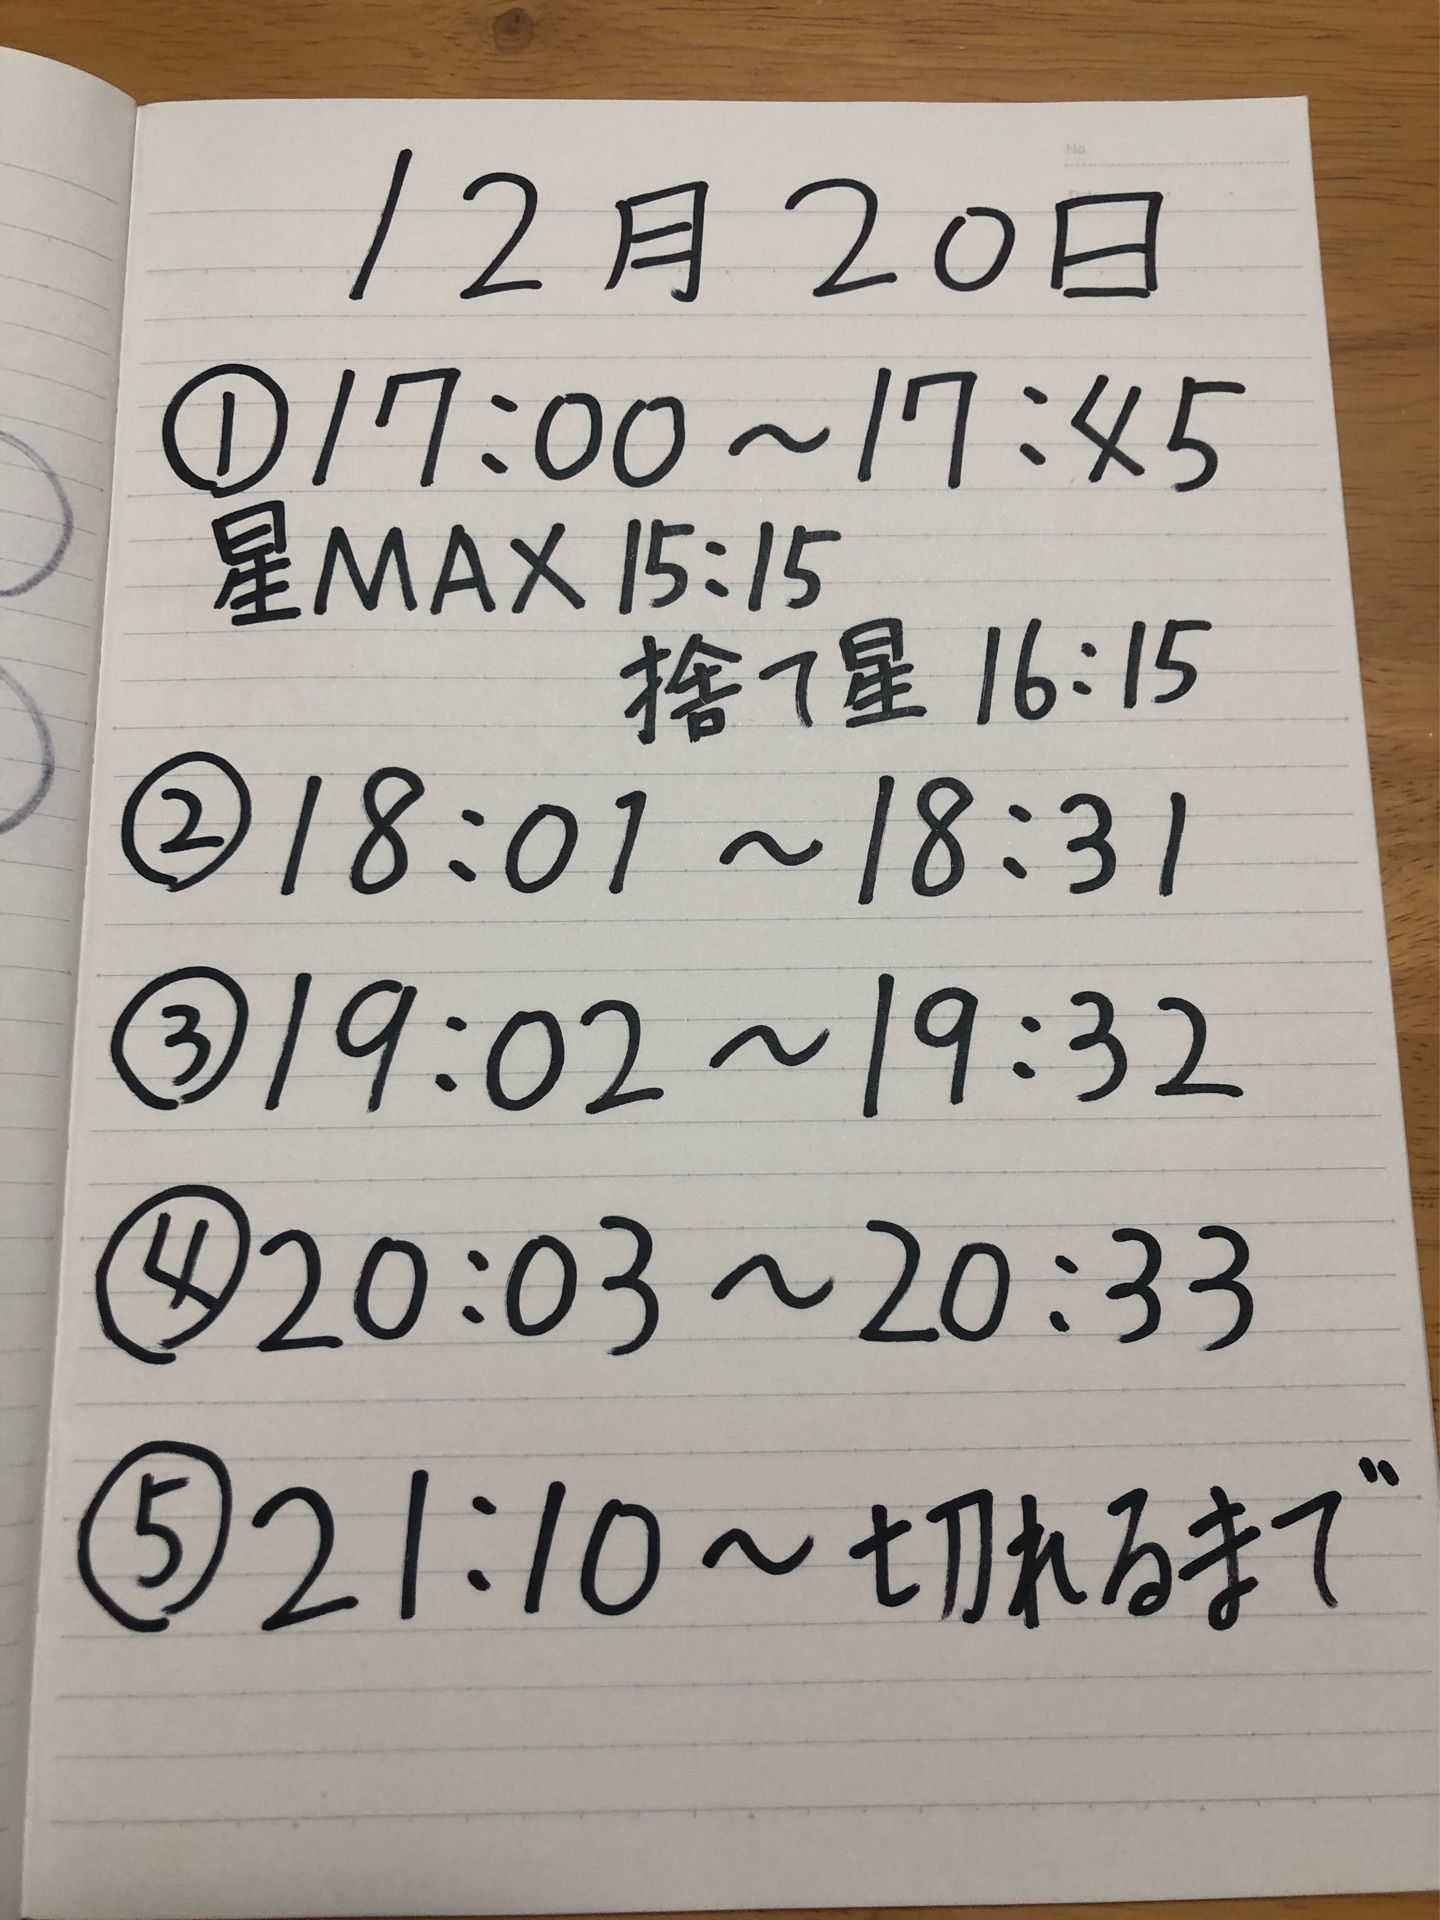 No.
12月20日
①17:00～17:45
星MAX 15:15
捨て星 16:15
②18:01～18:31
③19:02～19:32
④20:03～20:33
⑤21:10～切れるまで